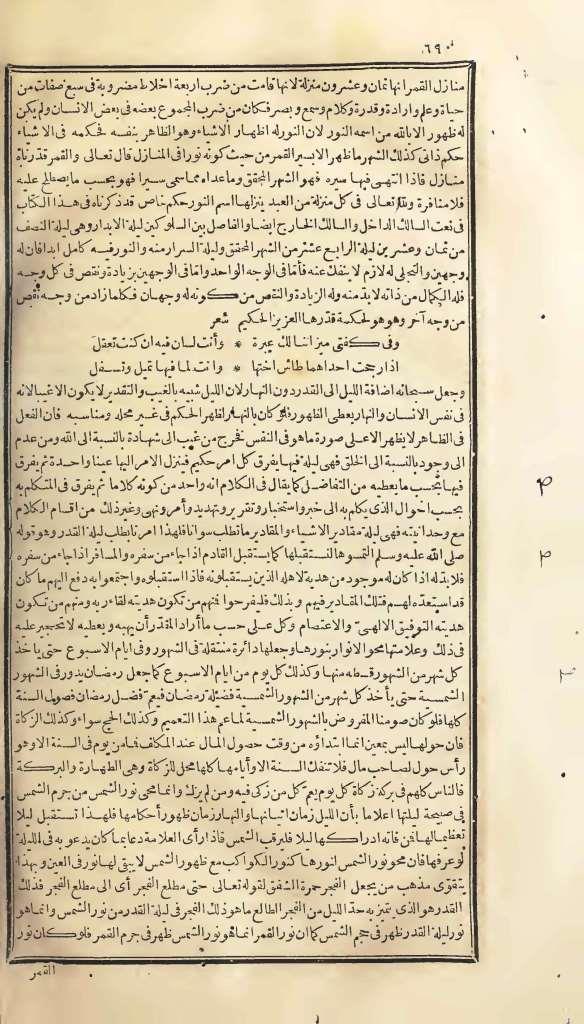 ٦٩٠
منازل القمر انها ثمان وعشرون منزلة لانها قامت من ضرب اربعة اخلاط مضروبة في سبع صفات من
حياة وعلم وارادة وقدرة وكلام وسمع وبصر فكان من ضرب المجموع بعضه في بعض الانسان ولم يكن
له ظهور الا بالله من اسمه النور لان النور له اظهار الاشياء وهو الظاهر بنفسه فحكمه في الاشياء
حكم ذاتي كذلك الشهر ما ظهر الا بسير القمر من حيث كونه نورا في المنازل قال تعالى والقمر قدرناه
منازل فاذا انتهى فيها سيره فهو الشهر المحقق وما عداه مما سمي شهرا فهو بحسب ما يصطلح عليه
فلا منافرة ولله تعالى في كل منزلة من العبد ينزلها اسم النور حكم خاص قد ذكرناه في هذا الكتاب
في نعت السالك الداخل والسالك الخارج ايضا والفاصل بين السلوكين ليلة الابدار وهي ليلة النصف
من ثمان وعشرين ليلة الرابع عشر من الشهر المحقق وليلة السرار منه والنور فيه كامل ابدا فان له
وجهين والتجلي له لازم لا ينفك عنه فأما في الوجه الواحد واما في الوجهين بزيادة ونقص في كل وجه
فله الكمال من ذاته لا بد منه وله الزيادة والنقص من كونه له وجهان فكلما زاد من وجه نقص
من وجه آخر وهو هو لحكمة قدرها العزيز الحكيم شعر
وفي كفتي ميزاننا لك عبرة * وأنت لسان فيه ان كنت تعقل
اذا رجحت احداهما طاش اختها * وانت لما فيها تميل وتسفل
وجعل سبحانه اضافة الليل الى القدر دون النهار لان الليل شبيه بالغيب والتقدير لا يكون الا غيبا لانه
في نفس الانسان والنهار يعطى الظهور فلو كان بالنهار لظهر الحكم في غير محله ومناسبه فان الفعل
في الظاهر لا يظهر الا على صورة ما هو في النفس فخرج من غيب الى شهادة بالنسبة الى الله ومن عدم
الى وجود بالنسبة الى الخلق فهي ليلة فيها يفرق كل امر حكيم فينزل الامر اليها عينا واحدة ثم يفرق
فيها بحسب ما يعطيه من التفاضل كما يقال في الكلام انه واحد من كونه كلاما ثم يفرق في المتكلم به
بحسب احوال الذي يكلم به الى خبر واستخبار وتقرير وتهديد وأمر ونهى وغير ذلك من اقسام الكلام
مع وحدانيته فهي ليلة مقادير الاشياء والمقادير ما تطلب سوانا فلهذا امرنا بطلب ليلة القدر وهو قوله
صلى الله عليه وسلم التمسوها لنستقبلها كما يستقبل القادم اذا جاء من سفره والمسافر اذا جاء من سفره
فلا بد له اذا كان له موجود من هدية لاهله الذين يستقبلونه فاذا استقبلوه واجتمعوا به دفع اليهم ما كان
قد استعده لهم فتلك المقادير فيهم وبذلك فليفرحوا فمنهم من تكون هديته لقاء ربه ومنهم من تكون
هديته التوفيق الالهي والاعتصام وكل على حسب ما أراد المقدر أن يهبه ويعطيه لا تحجير عليه
في ذلك وعلامتها محو الانوار بنورها وجعلها دائرة متنقلة في الشهور وفي ايام الاسبوع حتى يأخذ
كل شهر من الشهور قسطه منها وكذلك كل يوم من ايام الاسبوع كما جعل رمضان يدور في الشهور
الشمسية حتى يأخذ كل شهر من الشهور الشمسية فضيلة رمضان فيعم فضل رمضان فصول السنة
كلها فلو كان صومنا المفروض بالشهور الشمسية لما عم هذا التعميم وكذلك الحج سواء وكذلك الزكاة
فان حولها ليس بمعين انما ابتداؤه من وقت حصول المال عند المكلف فما من يوم في السنة الا وهو
رأس حول لصاحب مال فلا تنفك السنة الا وأيامها كلها محل للزكاة وهي الطهارة والبركة
فالناس كلهم في بركة زكاة كل يوم يعم كل من زكى فيه ومن لم يزك وانما محى نور الشمس من جرم الشمس
في صبيحة ليلتها اعلاما بأن الليل زمان اتيانها والنهار زمان ظهور أحكامها فلهذا تستقبل ليلا
تعظيما لها فمن فاته ادراكها ليلا فليرقب الشمس فاذا رأى العلامة دعا بما كان يدعو به في الليلة
لو عرفها فان محو نور الشمس لنورها كنور الكواكب مع ظهور الشمس لا يبقى لها نور في العين وبهذا
يتقوى مذهب من يجعل الفجر حمرة الشفق لقوله تعالى حتى مطلع الفجر أى الى مطلع الفجر فذلك
القدر هو الذي يتميز به حد الليل من الفجر الطالع ما هو ذلك الفجر في ليلة القدر من نور الشمس وانما هو
نور ليلة القدر ظهر في جرم الشمس كما ان نور القمر انما هو نور الشمس ظهر في جرم القمر فلو كان نور
القمر